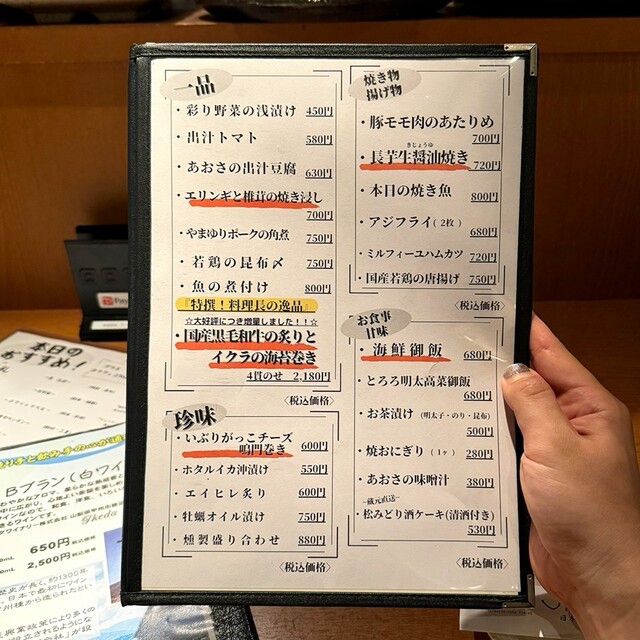 一品
・彩り野菜の浅漬け 450円
・出汁トマト 580円
・あおさの出汁豆腐 630円
・エリンギと椎茸の焼き浸し
700円
・やまゆりポークの角煮 750円
・若鶏の昆布〆 750円
・魚の煮付け 800円
『特撰！料理長の逸品』
☆大好評につき増量しました！！☆
・国産黒毛和牛の炙りと
イクラの海苔巻き
4貫のせ 2,180円
〈税込価格〉
珍味
・いぶりがっこチーズ
鳴門巻き 600円
・ホタルイカ沖漬け 550円
・エイヒレ炙り 600円
・牡蠣オイル漬け 750円
・燻製盛り合わせ 880円
〈税込価格〉
焼き物
揚げ物
・豚モモ肉のあたりめ
700円
きじょうゆ
・長芋生醤油焼き 720円
・本日の焼き魚 800円
・アジフライ（2枚）
680円
・ミルフィーユハムカツ 720円
・国産若鶏の唐揚げ 750円
〈税込価格〉
お食事
甘味
・海鮮御飯 680円
・とろろ明太高菜御飯
680円
・お茶漬け（明太子・のり・昆布）
500円
・焼おにぎり（1ヶ） 280円
・あおさの味噌汁 380円
~蔵元直送~
・松みどり酒ケーキ(清酒付き)
530円
〈税込価格〉
本日の
おすすめ！
Bブラン（白ワイ
650円
2,500円